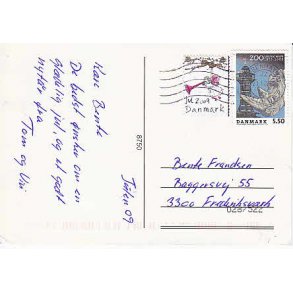 Kære Bente
De bedst ønsker om en
glædelig jul, og et godt
nytår fra
Tom og Uni
Julen 09
8750
Jul 2009
Danmark
200
DANMARK
5.50
Bente Frandsen
Baggersvej 55
3300 Frederiksværk